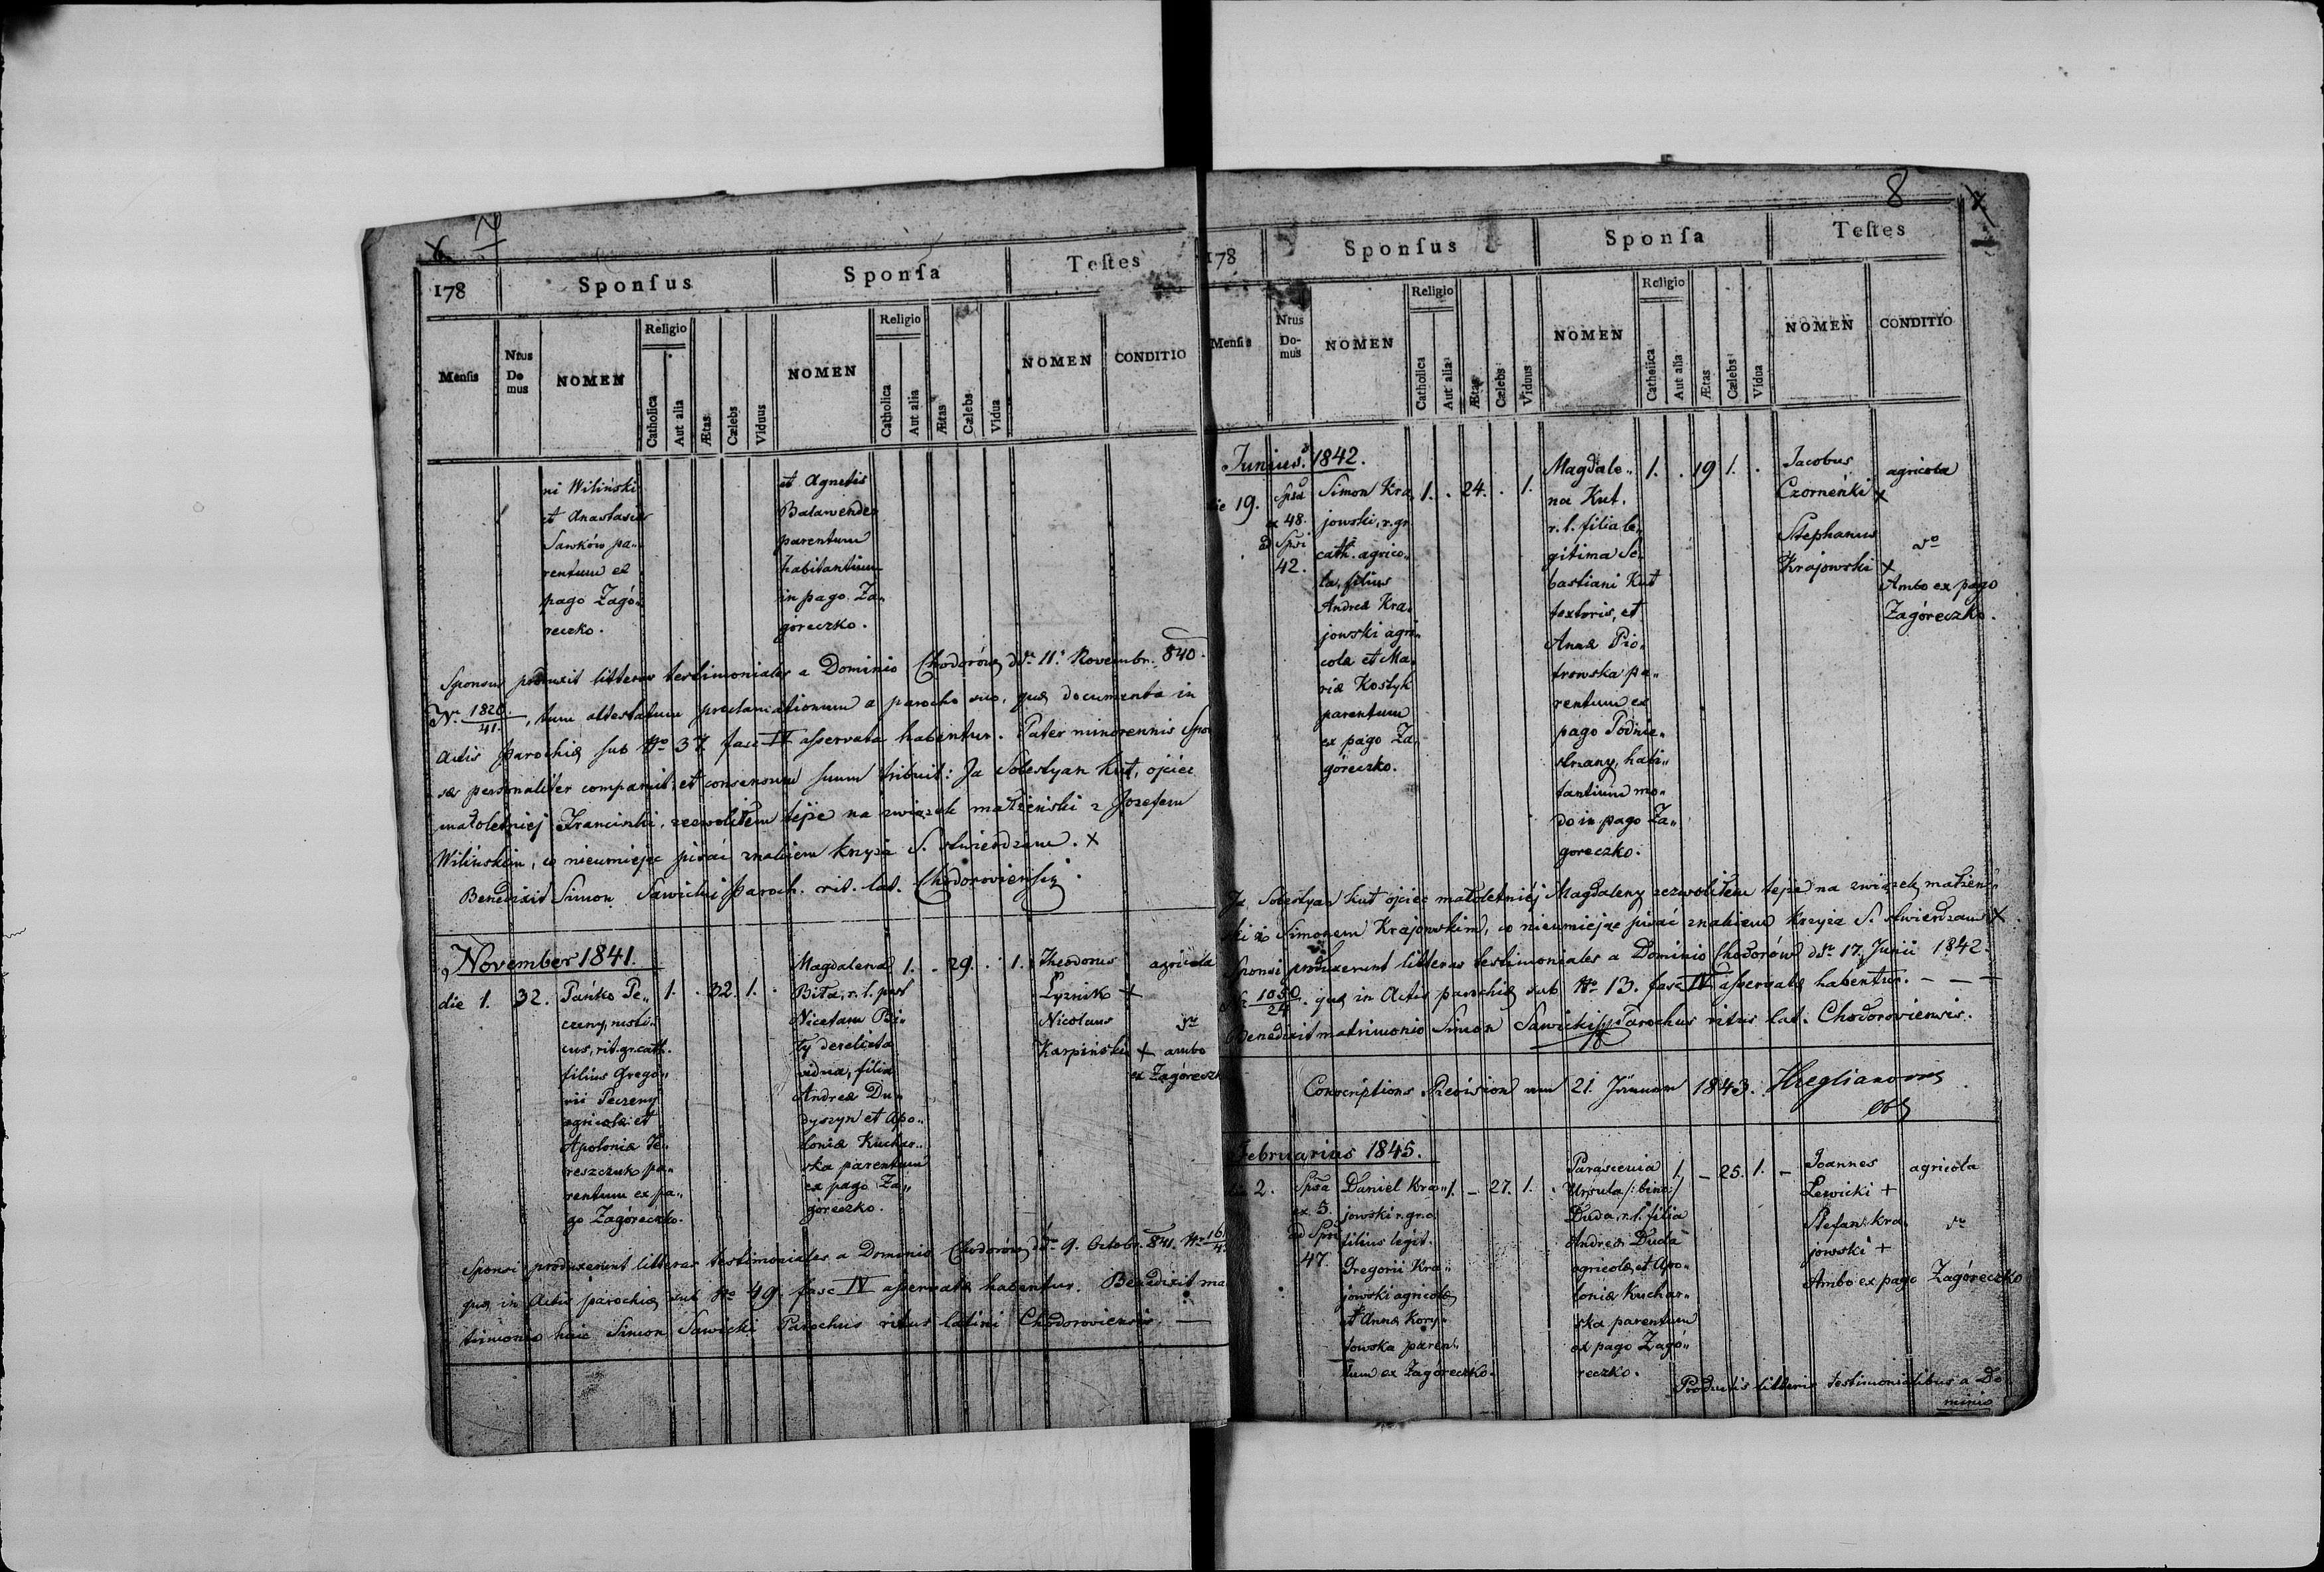 7
178
Sponſus
Sponſa
Teſtes
Menſis
Nrus Do mus
NOMEN
Religio
Catholica
Aut alia
Ætas
Cælebs
Viduus
NOMEN
Religio
Catholica
Aut alia
Ætas
Cælebs
Vidua
NOMEN
CONDITIO
ni Wiliński
et Anastasiæ
Sawków pa„
rentum ex
pago Zagó„
reczko.
et Agnetis
Balawender
parentum
habitantium
in pago Za„
góreczko.
Sponsus produxit litteras testimoniales a Dominio Chodorów ddto 11. Novembr. 840.
Nr. 1820/41, tum attestatum proclamationum a parocho suo, quæ documenta in
Actis parochiæ sub Nro 37 fasc IV asservata habentur. Pater minorennis Spon
sæ personaliter comparuit, et consensum suum tribuit: Ja Sobestyan Kut, ojciec
małoletniej Franciszki, zezwoliłem tejże na związek małżeński z Józefem
Wilińskim, co nieumiejąc pisać znakiem krzyża S. stwierdzam. X
Benedixit Simon Sawicki Paroch. rit. lat. Chodoroviensis.
November 1841.
die 1.
32.
Pańko Pe„
czeny, rusti„
cus, rit. gr. cath.
filius Grego„
rii Peczeny
agricolæ et
Apoloniæ Te„
reszczuk pa„
rentum ex pa„
go Zagóreczko.
1. . 32. 1. .
Magdalena
Biła, r. l. post
Nicetam Bi„
ły derelicta
vidua, filia
Andreæ Du„
dyszyn et Apo„
loniæ Kuchar„
ska parentum
ex pago Za„
góreczko.
1. . 29. . 1.
Theodorus
Łyznik +
Nicolaus
Karpiński +
agricola
dto
ambo
ex Zagóreczk
Sponsi produxerunt litteras testimoniales a Dominio Chodorów ddto 9. Octobr. 841. Nro 161
quæ in Actis parochiæ sub Nro 49 fasc IV asservatæ habentur. Benedixit ma
trimonio huic Simon Sawicki Parochus ritus latini Chodoroviensis. —
8
178
Sponſus
Sponſa
Teſtes
Menſis
Nrus Do- mus
NOMEN
Religio
Catholica
Aut alia
Ætas
Cælebs
Viduus
NOMEN
Religio
Catholica
Aut alia
Ætas
Cælebs
Vidua
NOMEN
CONDITIO
Junius. 1842.
die 19.
Spsa
ex 48.
ad Spsi
42.
Simon Kra„
jowski, r. gr.
cath. agrico„
la, filius
Andreæ Kra„
jowski agri„
colæ et Ma„
riæ Kostyk
parentum
ex pago Za„
góreczko.
1. . 24. . 1.
Magdale„
na Kut.
r. l. filia le„
gitima Se„
bastiani Kut
textoris, et
Annæ Pio„
trowska pa„
rentum ex
pago Podnie„
strzany, habi„
tantium mo„
do in pago Za„
goreczko.
1. . 19 1. .
Jacobus
Czorneńki X
Stephanus
Krajowski X
agricola
dto
Ambo ex pago
Zagóreczko.
Ja Sobestyan Kut ojciec małoletniéj Magdaleny zezwoliłem tejże na związek małżeń„
ski z Simonem Krajowskim, co nieumiejąc pisać znakiem Krzyża S. stwierdzam X
Sponsi produxerunt litteras testimoniales a Dominio Chodorów ddto 17. Junii 1842.
Nr. 1050/24. quæ in Actis parochiæ sub Nro 13. fasc IV asservatæ habentur. - — —
Benedixit matrimonio Simon Sawicki Parochus ritus lat. Chodoroviensis.
Conscriptions Revision am 21. Jänner 1843.
Februarius 1845.
die 2.
Spsa
ex 3.
ad Spsi
47.
Daniel Kra„
jowski r. gr. c.
filius legit.
Gregorii Kra„
jowski agricolæ
et Annæ Kory„
towska paren„
tum ex Zagóreczko.
1. – 27. 1. .
Parascevia
Ursula /: bino:/
Duda, r. l. filia
Andreæ Duda
agricolæ, et Apo„
loniæ Kuchar„
ska parentum
ex pago Zagó„
reczko.
1. – 25. 1. –
Joannes
Lewicki +
Stefan Kra„
jowski +
agricola
dto
Ambo ex pago Zagóreczko
Productis litteris testimonialibus a Do„
minio